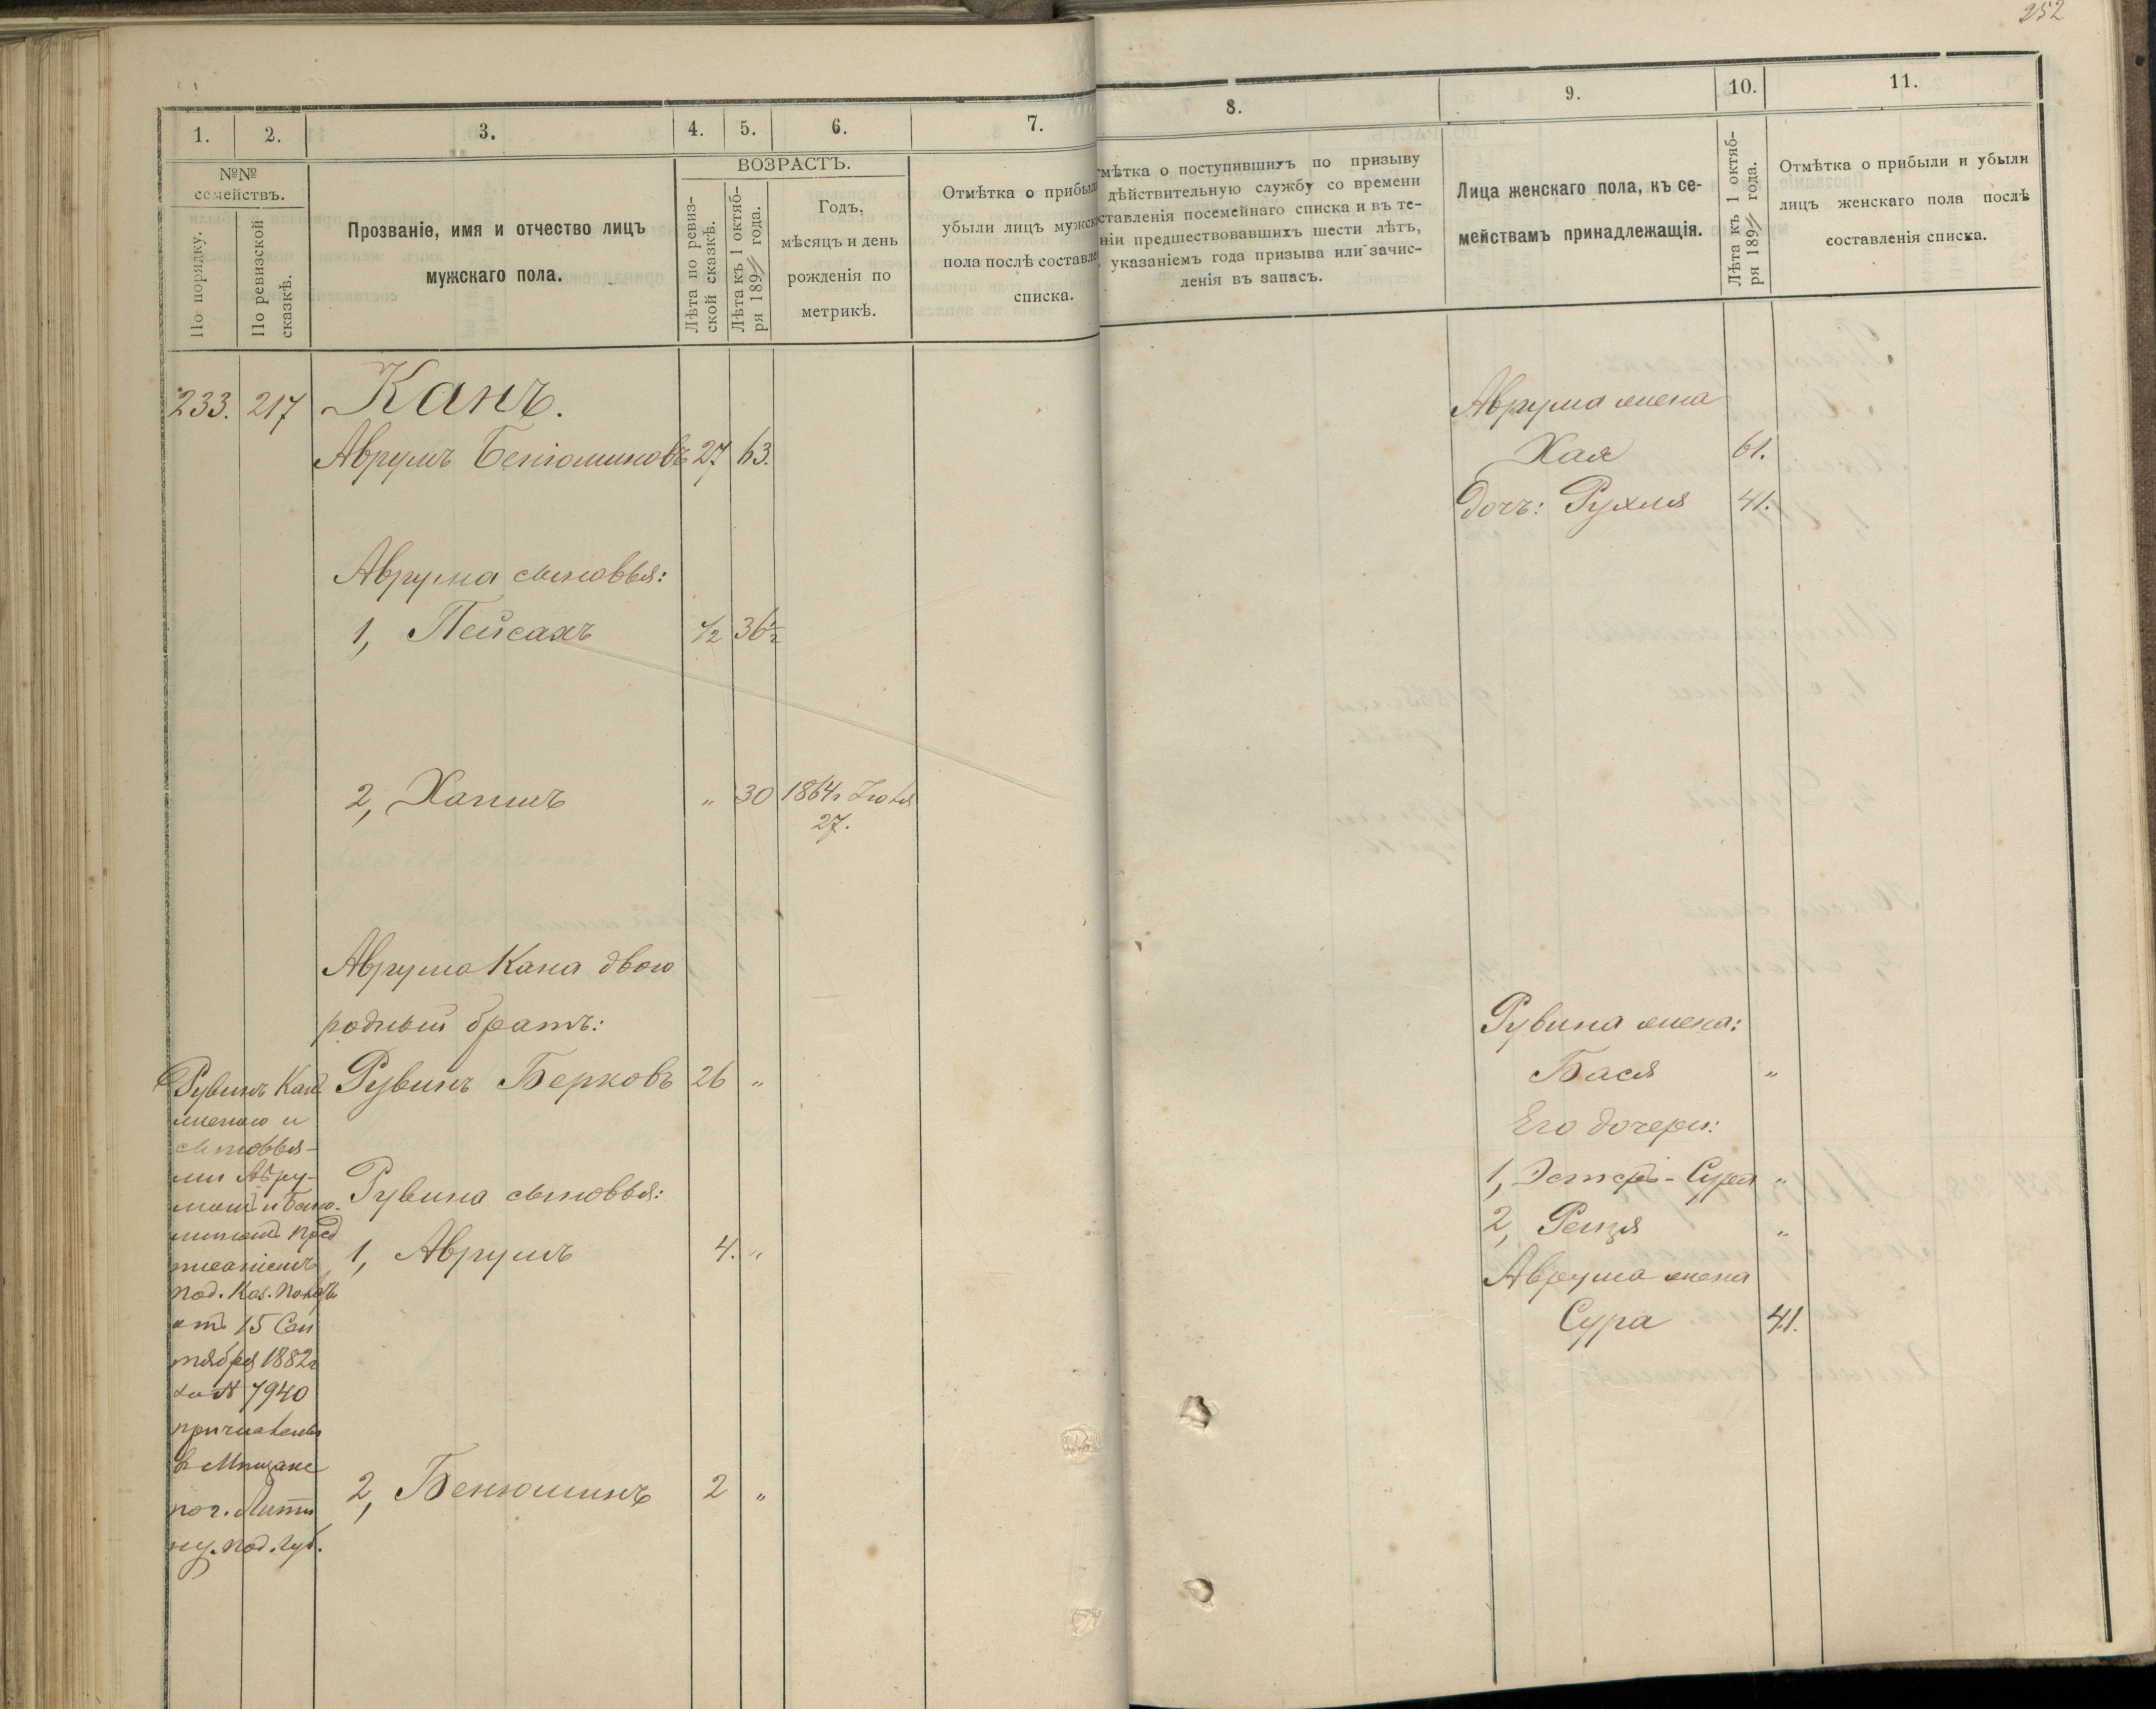 252
1. 2. 3. 4. 5. 6. 7. 8. 9. 10. 11.
№№ семействъ.
По порядку.
По ревизской сказкѣ.
Прозваніе, имя и отчество лицъ
мужскаго пола.
ВОЗРАСТЪ.
Лѣта по ревиз-
ской сказкѣ.
Лѣта къ 1 октяб-
ря 189 года.
Годъ,
мѣсяцъ и день
рожденія по
метрикѣ.
Отмѣтка о прибыли
убыли лицъ мужск
пола послѣ составле
списка.
мѣтка о поступившихъ по призыву
дѣйствительную службу со времени
ставленія посемейнаго списка и въ те-
ніи предшествовавшихъ шести лѣтъ,
указаніемъ года призыва или зачис-
ленія въ запасъ.
Лица женскаго пола, къ се-
мействамъ принадлежащія.
Лѣта къ 1 октяб-
ря 189 года.
Отмѣтка о прибыли и убыли
лицъ женскаго пола послѣ
составленія списка.
233. 217 Канъ.
Аврумъ Беніоминовъ 27 63.
Аврума сыновья:
1, Пейсахъ 1/2 36 1/2
2, Хаимъ " 30 1864 г Іюля
27.
Аврума Кана двою
родный братъ:
Рувинъ Берковъ 26 "
Рувина сыновья:
1, Аврумъ 4. "
2, Бенюминъ 2 "
Рувинъ Канъ
женою и
сыновья-
ми Авру-
момъ и Беню-
миномъ пред
писаніемъ
Под. Каз. Палаты
отъ 15 Сен
тября 1882 г
за № 7940
причислены
въ Мѣщане
гог. Лити
ну. Под. Губ.
Аврума жена
Хая 61.
дочь: Рухля 41.
Рувина жена:
Бася "
Его дочери:
1, Эстеръ-Сура "
2, Рейзя "
Аврума жена
Сура 41.